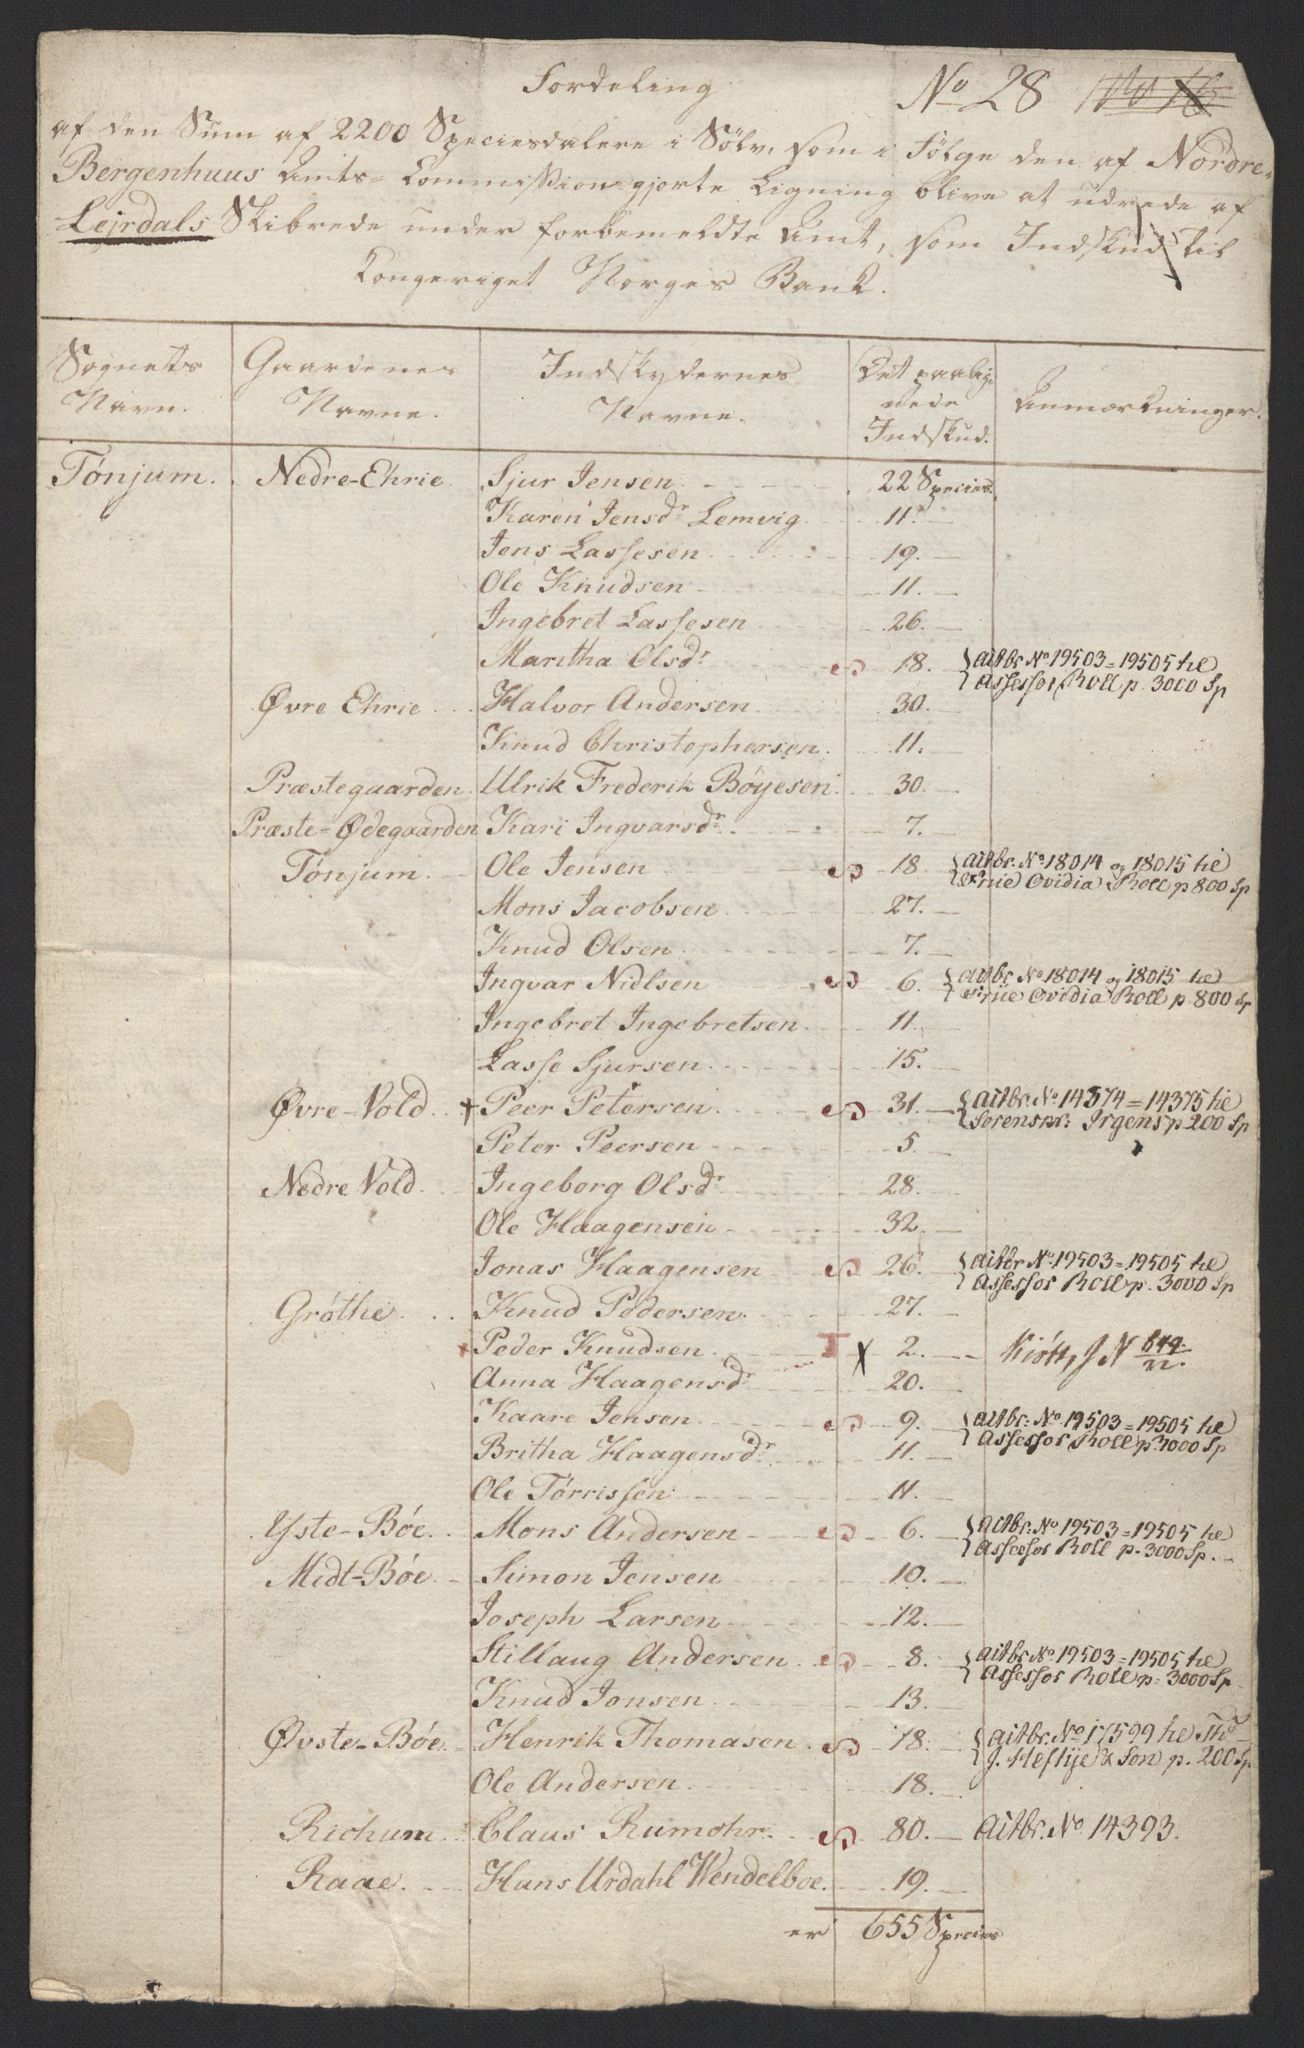 Fordeling
No 28
af den Sum af 2200 Speciesdalere i Sølv, som i Følge den af Nordre-
Bergenhuus Amts-Commission gjorte Ligning blive at udrede af
Lejrdals Skibrede under forbemeldte Amt, som Indskud til
Kongeriget Norges Bank.
Sognets Navn. | Gaardenes Navne. | Indskydernes Navne. | Det paalignede Indskud. | Anmærkninger.
Tønjum. Nedre-Ehrie Sjur Jensen 22 Species.
Karen Jensdr Lemvig 11.
Jens Lassesen 19.
Ole Knudsen 11.
Ingebret Lassesen 26.
Maritha Olsdr 18. Actbr. No 19503 = 19505 he
Assessor Roll p. 3000 Sp
Øvre Ehrie Halvor Andersen 30.
Knud Christophersen 11.
Præstegaarden Ulrik Frederik Böyesen 30.
Præste-Ødegaarden Kari Ingvarsdr 7.
Tønjum Ole Jensen 18. Actbr. No 18014 og 18015 he
Ovidia Roll p 800 Sp
Mons Jacobsen 27.
Knud Olsen 7.
Ingvar Nidlsen 6. Actbr No 18014 og 18015 he
Ovidia Roll p 800 Sp
Ingebret Ingebretsen 11.
Lasse Sjursen 15.
Øvre-Vold + Peer Petersen 31. Actbr. No 14374 = 14375 he
Sorenskr: Irgens p 200 Sp
Peter Peersen 5.
Nedre Vold Ingeborg Olsdr 28.
Ole Haagensen 32.
Jonas Haagensen 26. Actbr No 19503 = 19505 he
Assessor Roll p. 3000 Sp
Grøthe Knud Pedersen 27.
Peder Knudsen X 2.
Anna Haagensdr 20.
Kaare Jensen 9. Actbr: No 19503 = 19505 he
Assessor Roll p. 3000 Sp
Britha Haagensdr 11.
Ole Tørrissen 11.
Yste-Bøe Mons Andersen 6. Actbr. No 19503 = 19505 he
Assessor Roll p. 3000 Sp.
Midt-Bøe Simon Jensen 10.
Joseph Larsen 12.
Stillaug Andersen 8. Actbr No 19503 = 19505 he
Assessor Roll p: 3000 Sp
Knud Jonsen 13.
Øvste-Bøe Henrik Thomasen 18. Actbr. No 17599 he Th
J. Heftije & Søn p. 200 Sp
Ole Andersen 18.
Richum Claus Rumohr 80. Actbr. No 14393.
Raae. Hans Urdahl Wendelboe 19.
er 655 Species